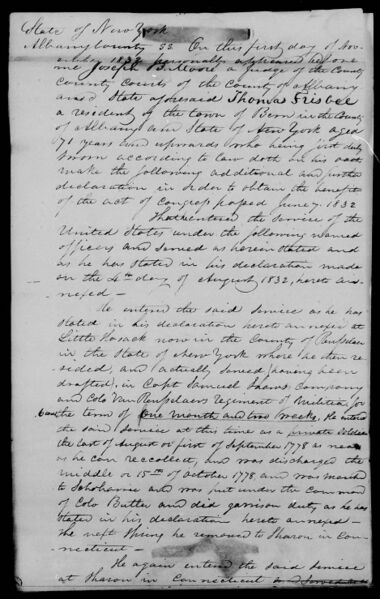 State of New York
Albany County SS. On this first day of Nov-
ember 1832 personally appeared before
me Joseph B. a Judge of the County
County Courts of the County of Albany
and State aforesaid Thomas Frisbee
a resident of the town of Bern in the County
of Albany and State of New York aged
71 years and upwards who being first duly
sworn according to law doth on his oath
make the following additional and further
declaration in order to obtain the benefit
of the act of Congress passed June 7. 1832
That entered the service of the
United States under the following named
officers and served as herein stated and
as he has stated in his declaration made
on the 4th day of August 1832, hereto an-
nexed —
He entered the said service as he has
stated in his declaration hereto annexed at
Little Hosack now in the County of Rensselaer
in the State of New York where he then re-
sided, and actually served having been
drafted, in Capt Samuel Shaws company
and Colo Van Renselaers Regiment of Militia, for
the term of one month and two weeks, He entered
the said service at this time as a private soldier
the last of August or first of September 1778 as near
as he can reccollect, and was discharged the
middle or 15th of October 1778 and was marched
to Schoharie and was put under the command
of Colo Butler and did garrison duty as he has
stated in his declaration hereto annexed —
The next Spring he removed to Sharon in Con-
necticut —
He again entered the said service
at Sharon in Connecticut and served